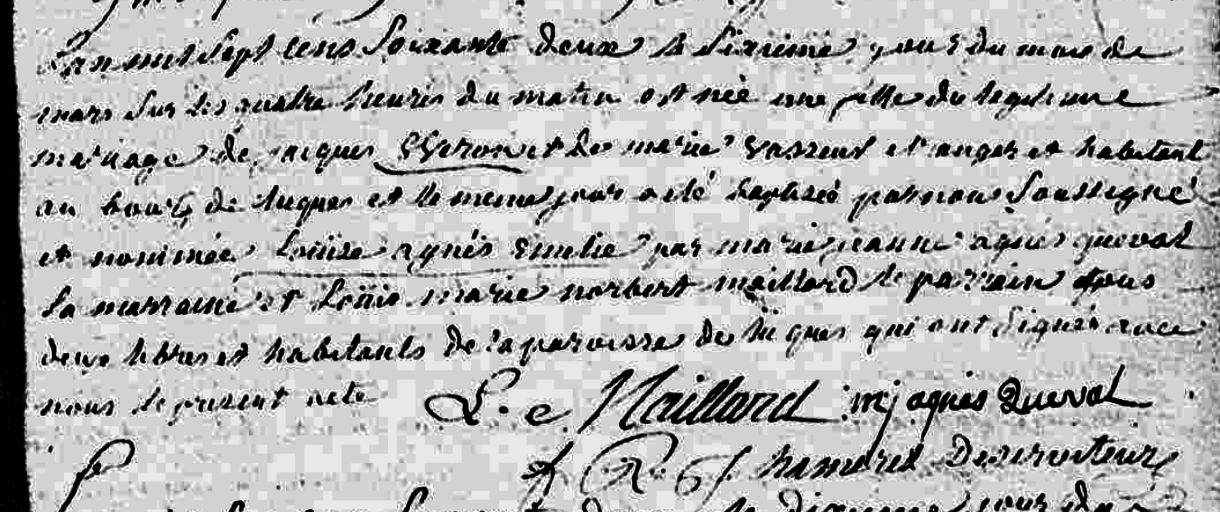 L'an mil sept cens soixante deux le sixieme jour du mois de
mars sur les quatre heures du matin est née une fille du legitime
mariage de jacques Veron et de marie vasseur et habitant
au bourg de et le meme jour a eté baptisée par nous soussigné
et nommée Loüise agnés Emelie par marie jeanne agnes queval
la marraine et Loüis marie norbert maillard le parrain tous
deux libres et habitants de la paroisse de qui ont signés avec
nous le present acte L. Maillard mj agnés Queval
Deserviteur
jour du